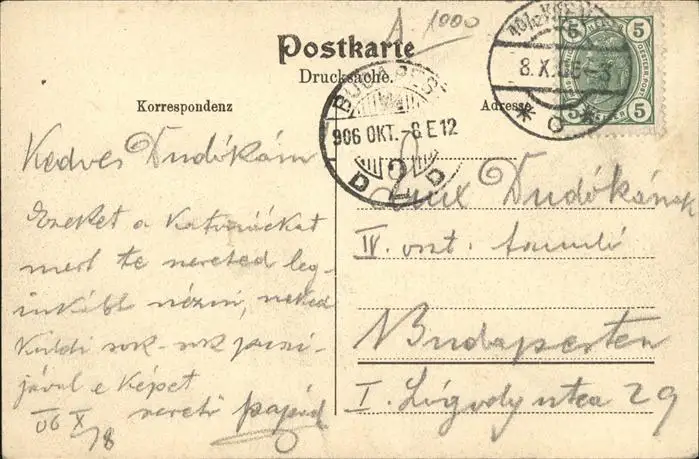 A 1000
Postkarte
Drucksache.
Korrespondenz
Adresse
8.X.06
5 5
5 5
BUDAPEST
906 OKT.-8.E12
D D
Kedves Dudókám
Ezeket a katonákat
mert te szereted leg-
inkább nézni, neked
küldi sok-sok puszi-
jával e képet
06 X/8 szerető papád
Lux Dudókának
IV. oszt. tanuló
Budapesten
I. Lógody utca 29